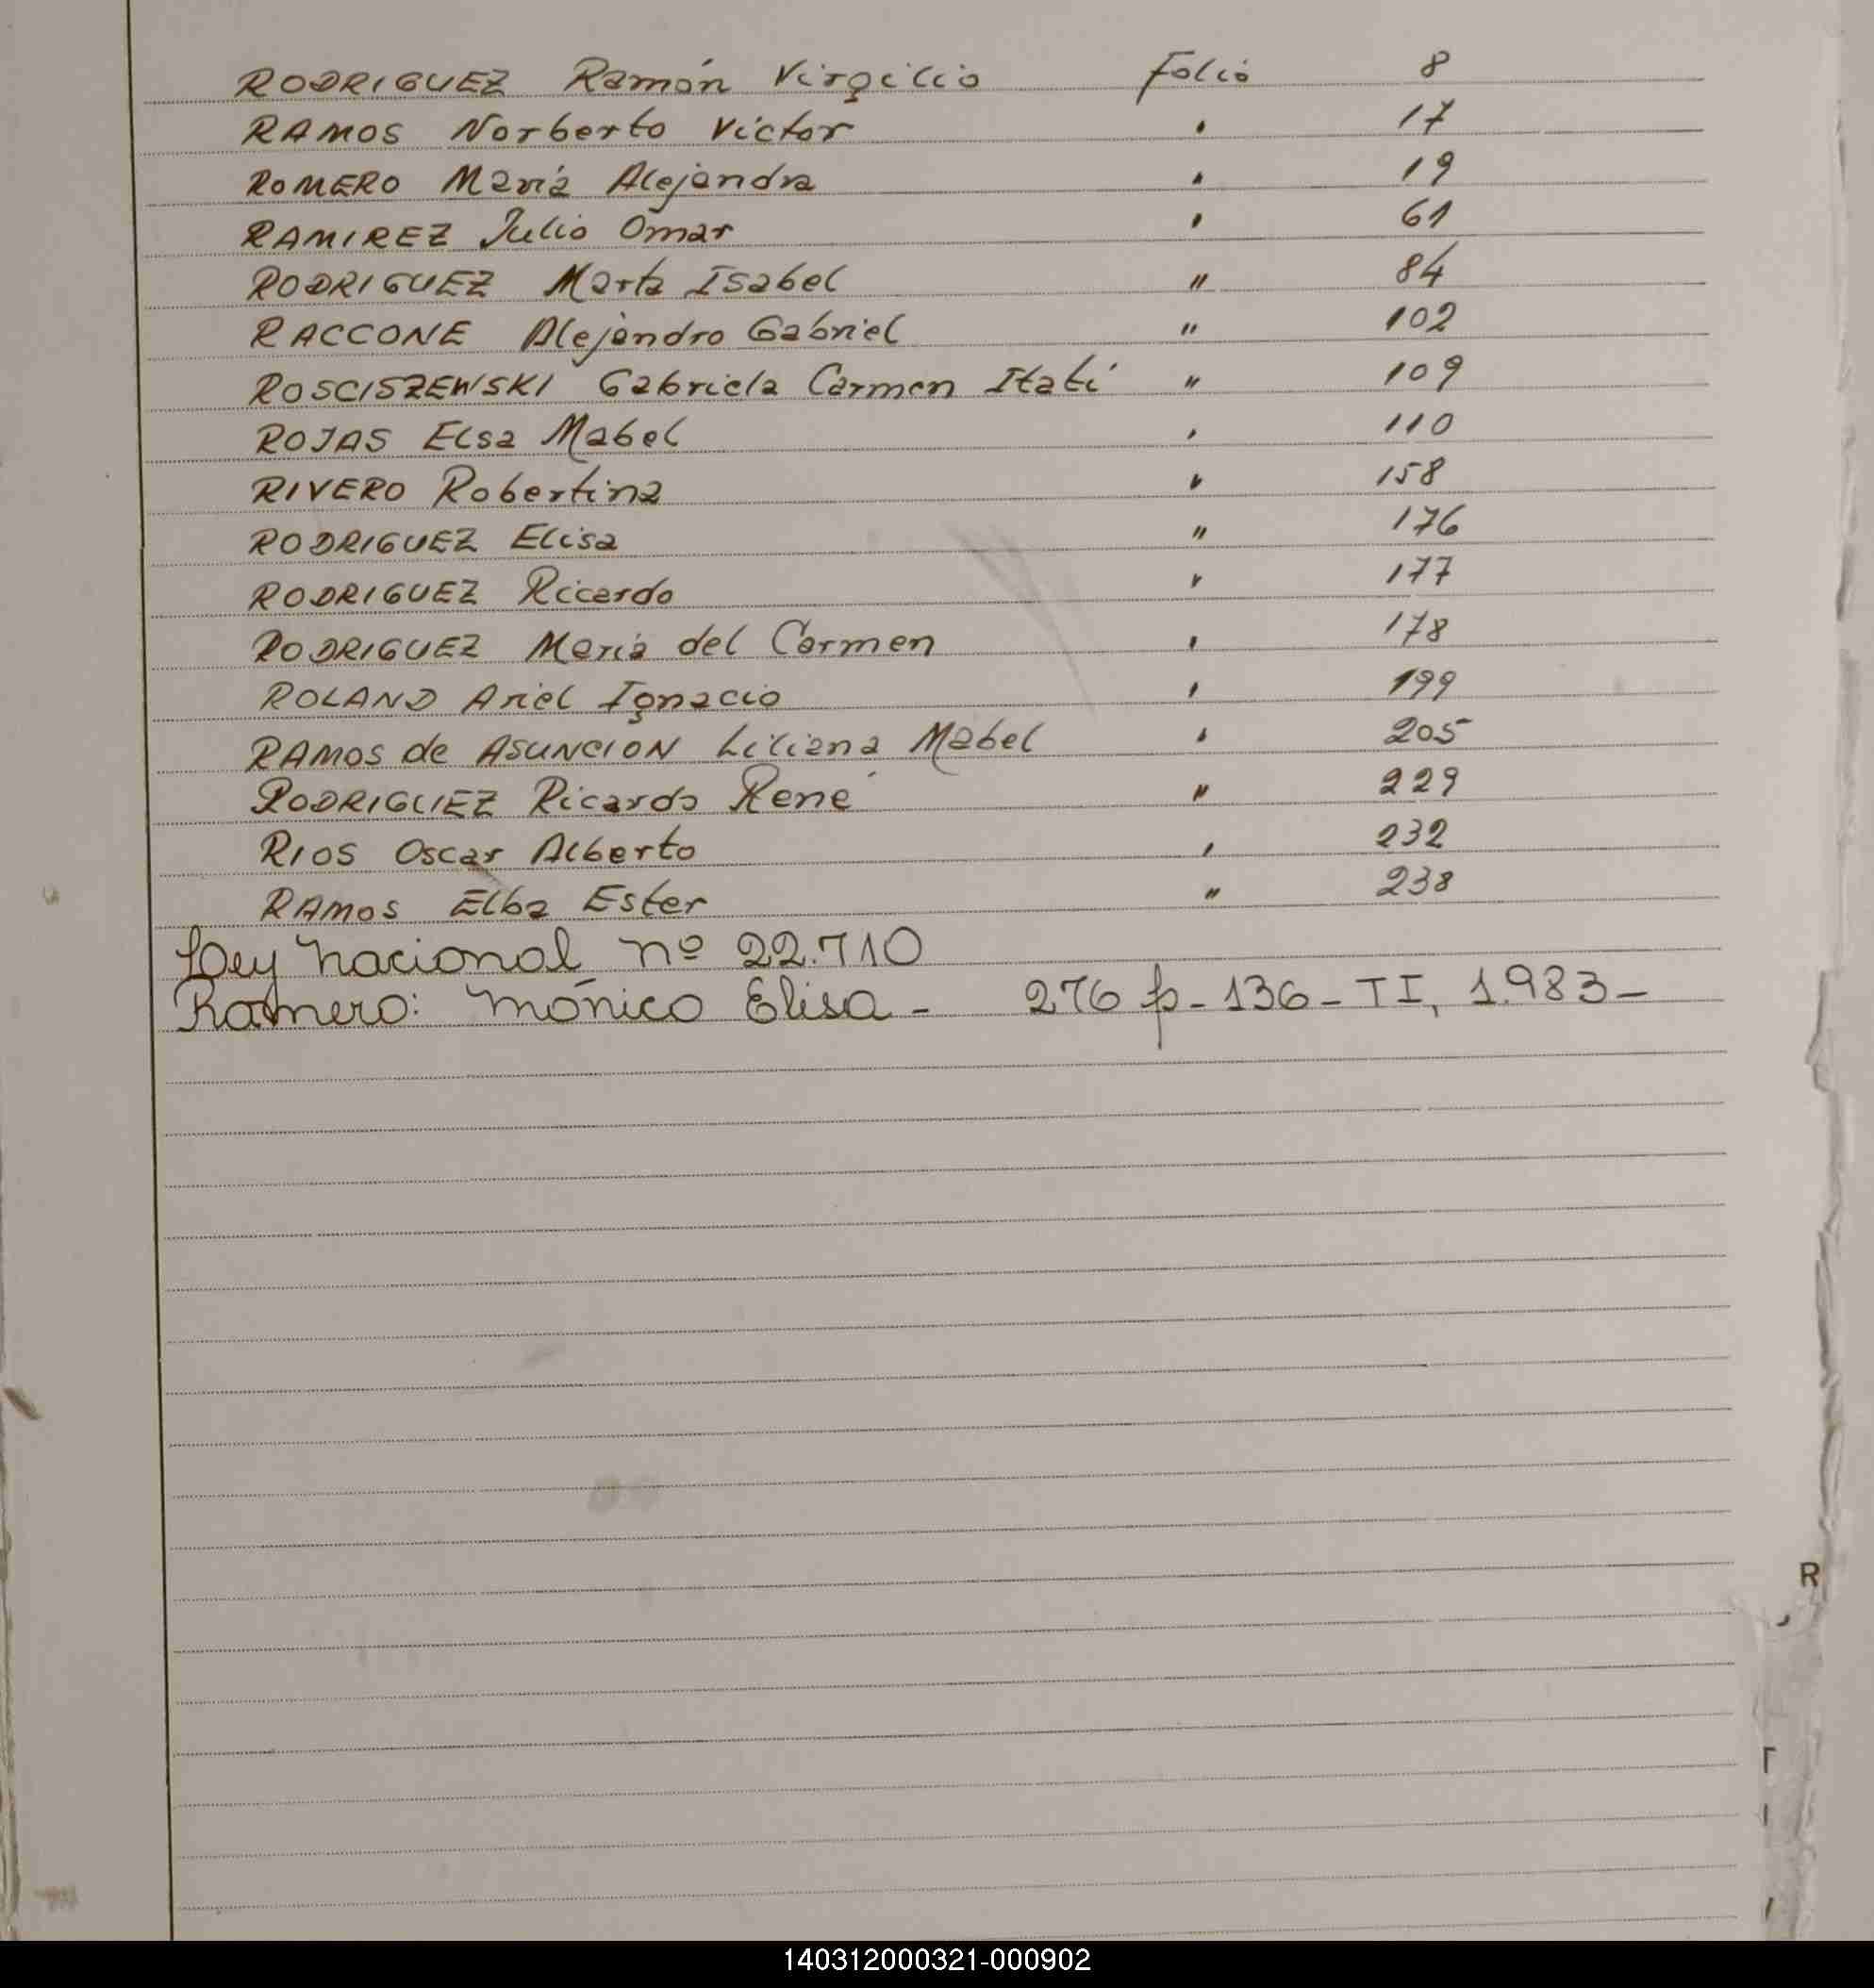 RODRIGUEZ Ramón Virgilio Folio 8
RAMOS Norberto Victor " 17
ROMERO María Alejandra " 19
RAMIREZ Julio Omar " 61
RODRIGUEZ Marta Isabel " 84
RACCONE Alejandro Gabriel " 102
ROSCISZEWSKI Gabriela Carmen Itatí " 109
ROJAS Elsa Mabel " 110
RIVERO Robertina " 158
RODRIGUEZ Elisa " 176
RODRIGUEZ Ricardo " 177
RODRIGUEZ María del Carmen " 178
ROLAND Ariel Ignacio " 199
RAMOS de ASUNCION Liliana Mabel " 205
RODRIGUEZ Ricardo René " 229
RIOS Oscar Alberto " 232
RAMOS Elba Ester " 238
Ley nacional nº 22.710
Romero: Mónica Elisa - 276 f - 136 - TI, 1.983 -
R
140312000321-000902